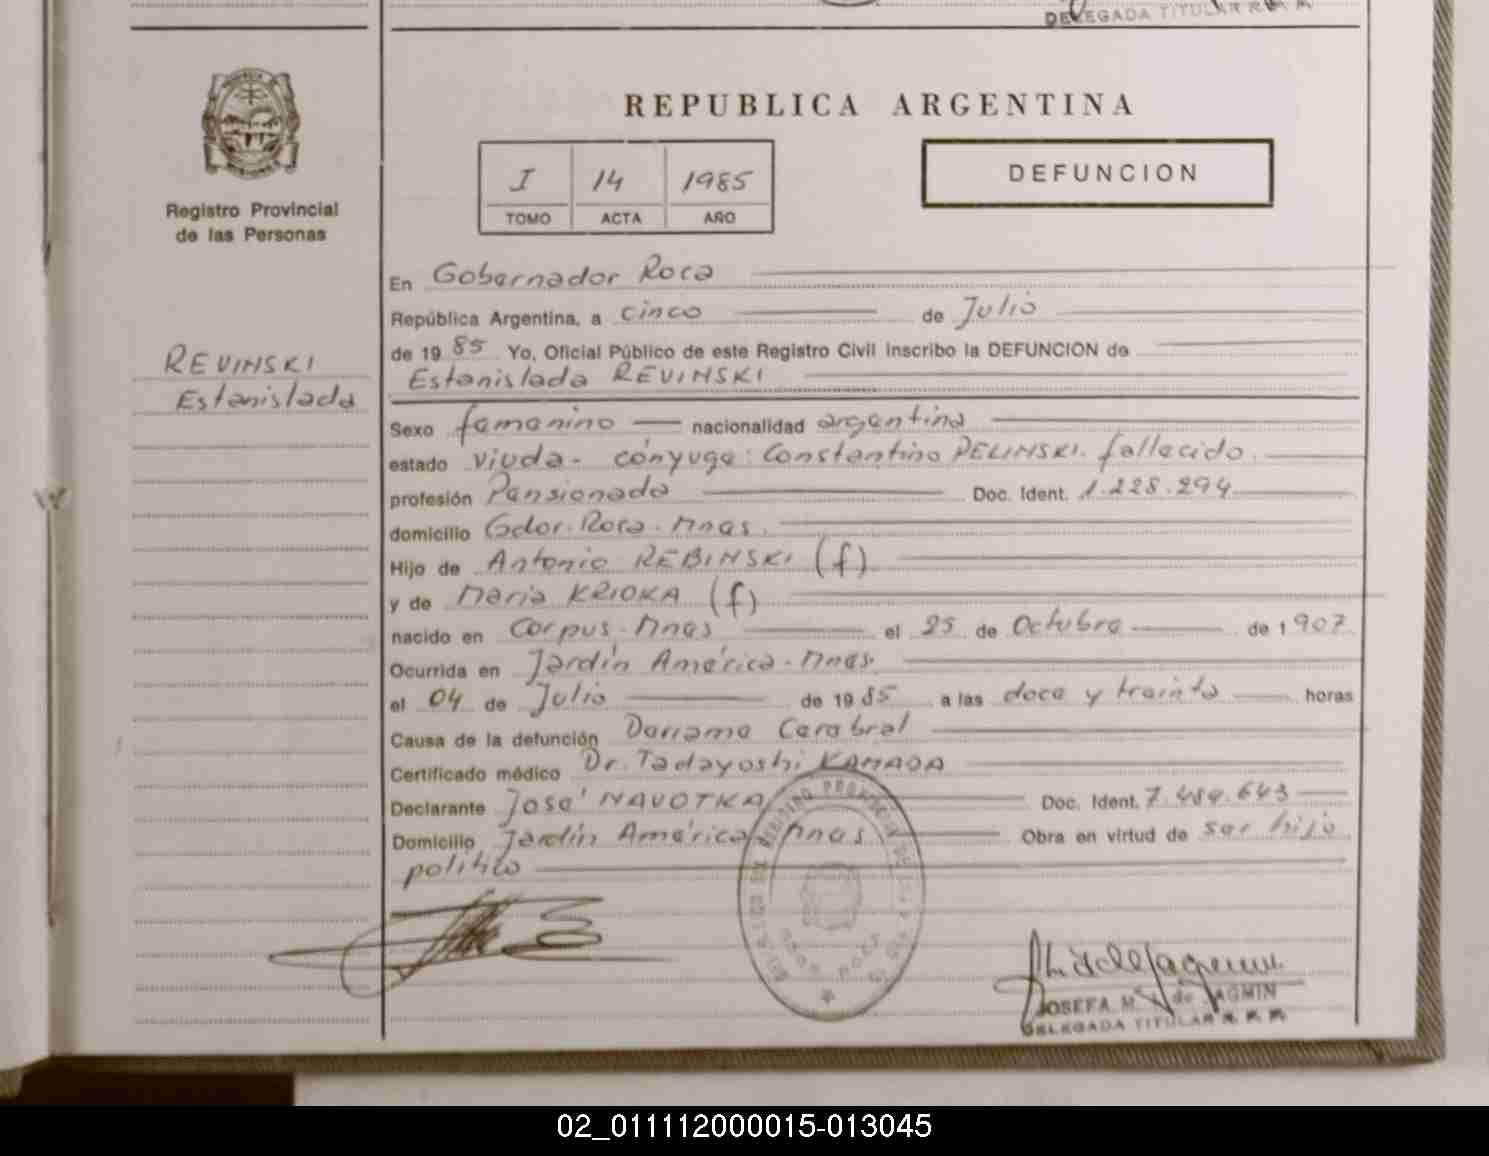 DELEGADA TITULAR R. P. P.
REPUBLICA ARGENTINA
I 14 1985
TOMO ACTA AÑO
DEFUNCION
Registro Provincial
de las Personas
REVINSKI
Estanislada
En Gobernador Roca
República Argentina, a cinco de Julio
de 19 85 Yo, Oficial Público de este Registro Civil inscribo la DEFUNCION de
Estanislada REVINSKI
Sexo femenino nacionalidad argentina
estado Viuda- cónyuge: Constantino PELINSKI. fallecido.
profesión Pensionada Doc. Ident. 1.228.294
domicilio Gdor. Roca - Mnes.
Hijo de Antonio REBINSKI (f)
y de Maria KRIOKA (f)
nacido en Corpus - Mnes el 25 de Octubre de 1 907
Ocurrida en Jardín América - Mnes.
el 04 de Julio de 19 85 a las doce y treinta horas
Causa de la defunción Derrame Cerebral
Certificado médico Dr. Tadayoshi KAMADA
Declarante José NAVOTKA Doc. Ident. 7.484.643
Domicilio Jardín América Mnes Obra en virtud de ser hijo
político
JOSEFA M. de JAGMIN
DELEGADA TITULAR R. P. P.
02_011112000015-013045